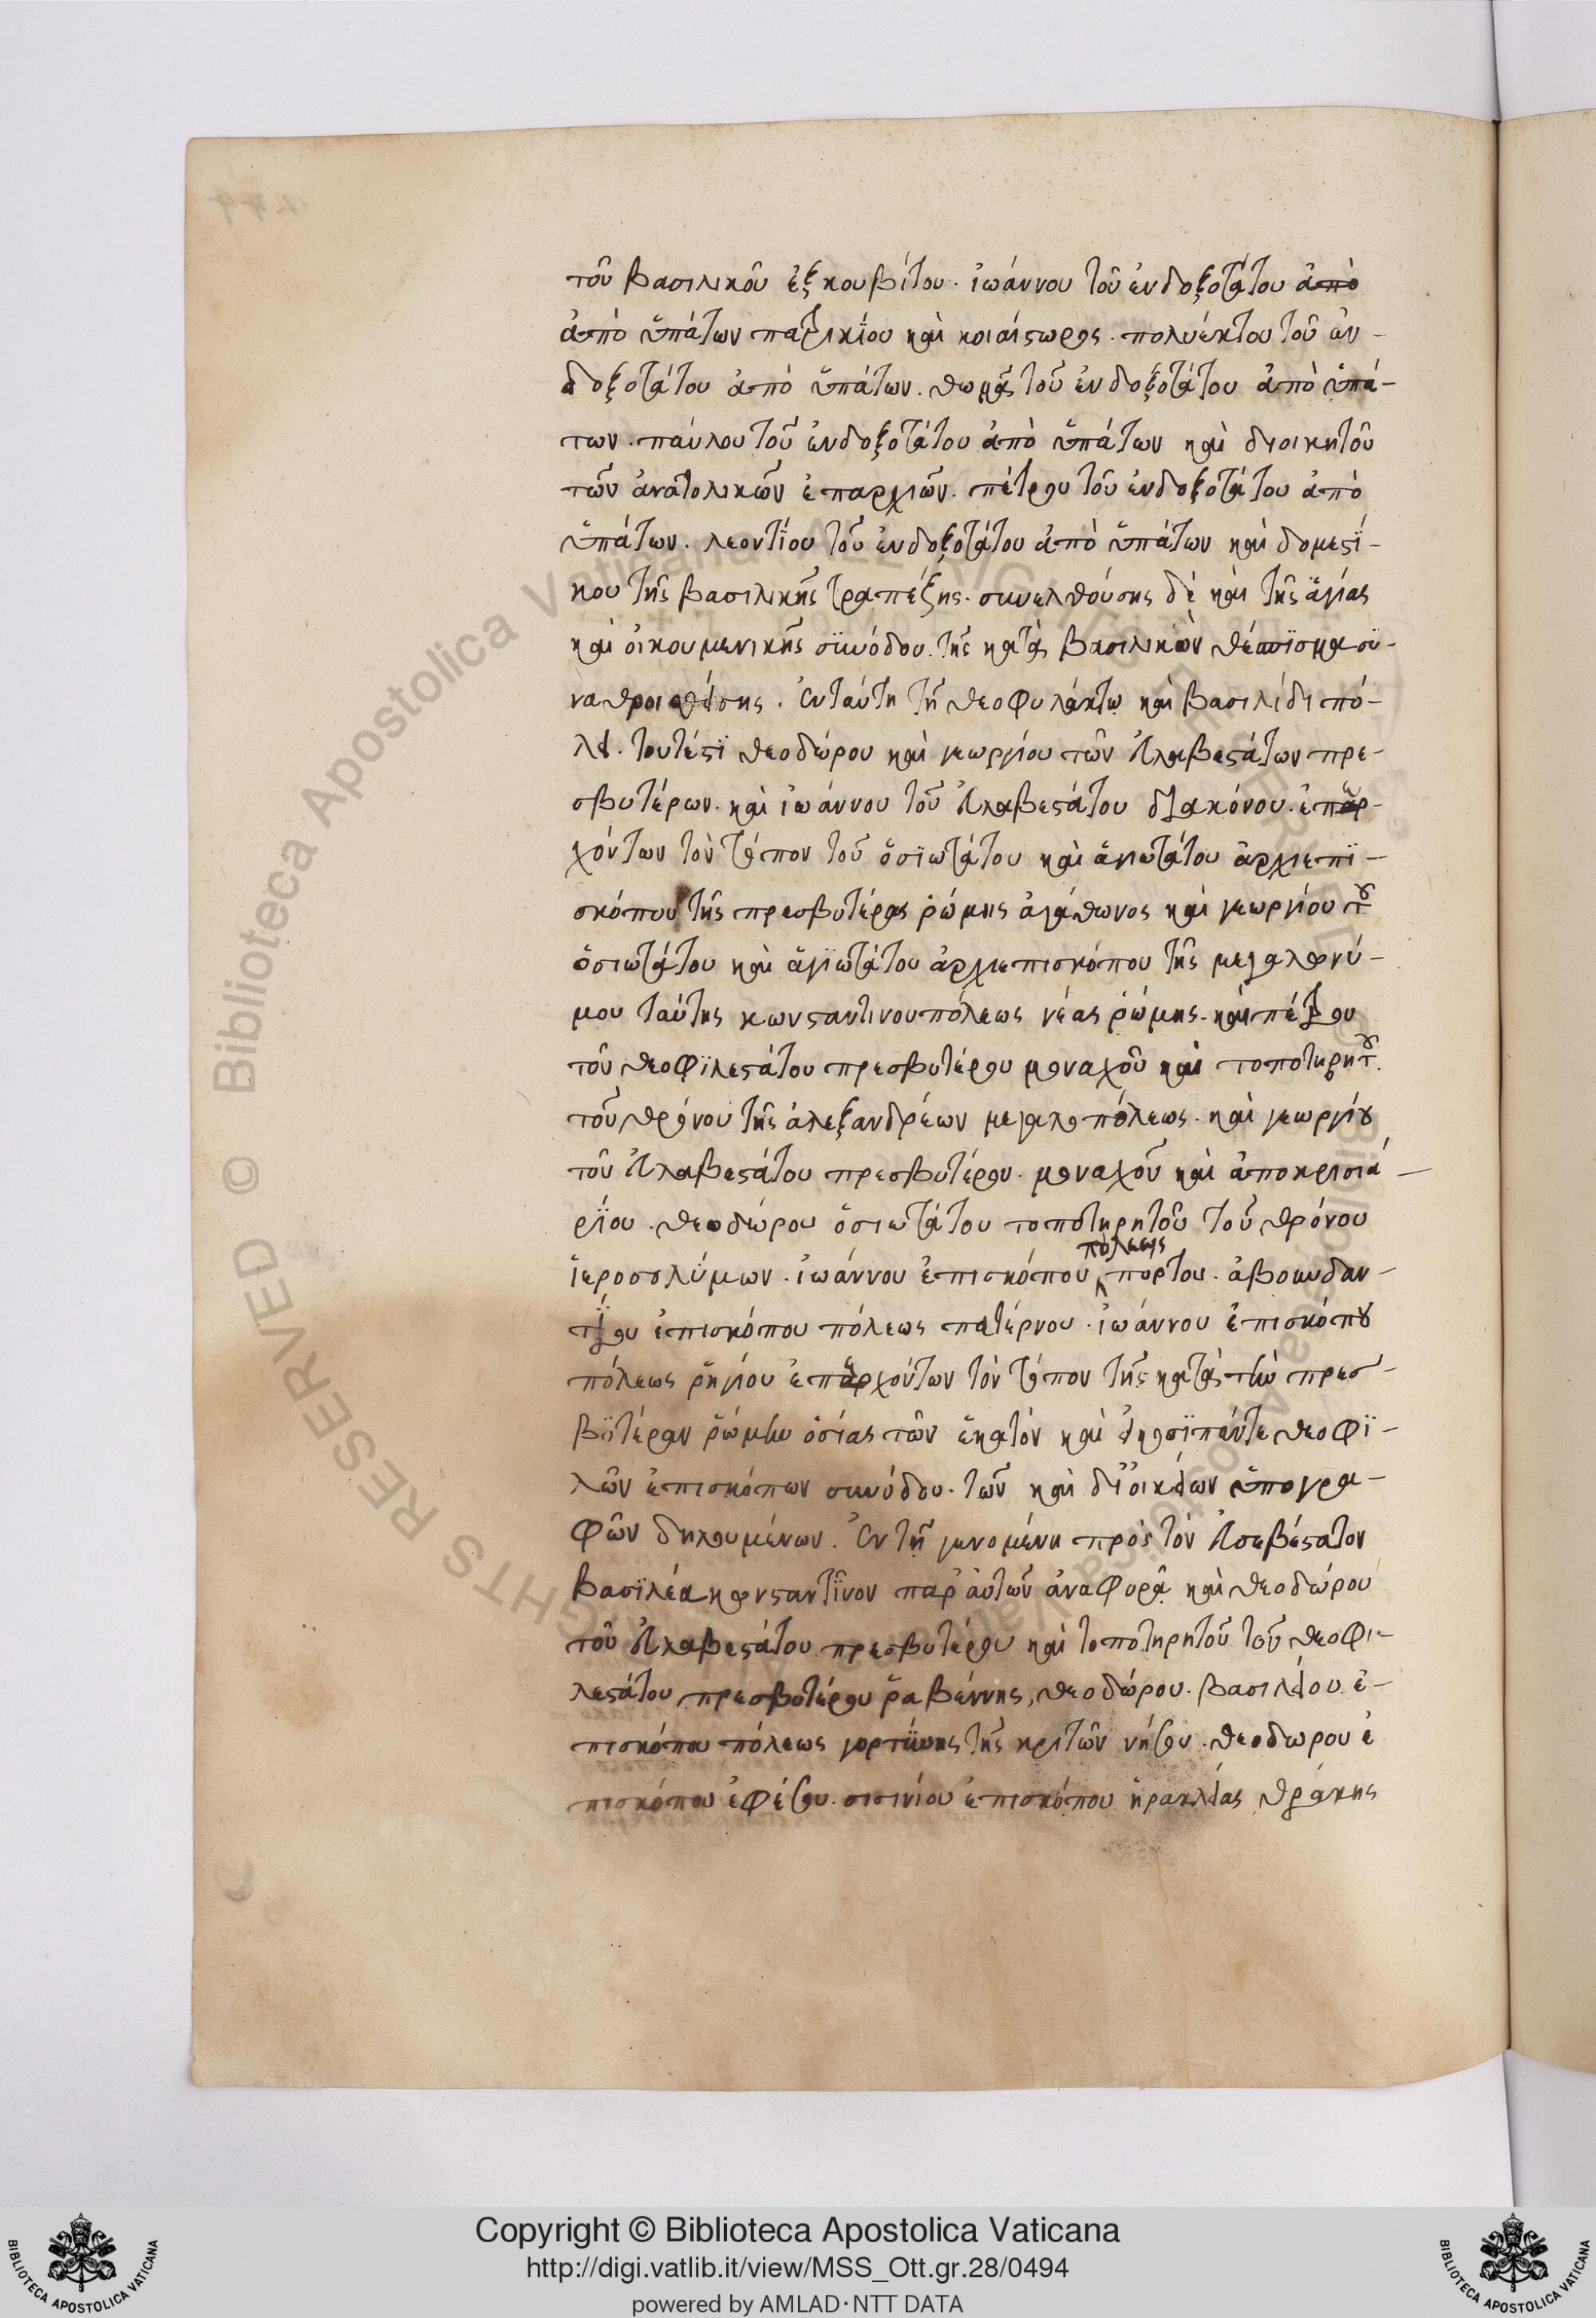 τοῦ βασιλικοῦ ἐξκουβίτου. ἰωάννου τοῦ ἐνδοξοτάτου ἀπὸ
ἀπὸ ὑπάτων πατρικίου καὶ κοιαίστωρος. πολυέκτου τοῦ ἐν-
δοξοτάτου ἀπὸ ὑπάτων. θωμᾶ τοῦ ἐνδοξοτάτου ἀπὸ ὑπά-
των. παύλου τοῦ ἐνδοξοτάτου ἀπὸ ὑπάτων καὶ διοικητοῦ
τῶν ἀνατολικῶν ἐπαρχιῶν. πέτρου τοῦ ἐνδοξοτάτου ἀπὸ
ὑπάτων. λεοντίου τοῦ ἐνδοξοτάτου ἀπὸ ὑπάτων καὶ δομεστί-
κου τῆς βασιλικῆς τραπέζης. συνελθούσης δὲ καὶ τῆς ἁγίας
καὶ οἰκουμενικῆς συνόδου. τῆς κατὰ βασιλικὸν θέσπισμα συ-
ναθροισθείσης. ἐν ταύτη τῆ θεοφυλάκτω καὶ βασιλίδι πό-
λει. τουτέστι θεοδώρου καὶ γεωργίου τῶν εὐλαβεστάτων πρε-
σβυτέρων. καὶ ἰωάννου τοῦ εὐλαβεστάτου διακόνου. ἐπαρ-
χόντων τὸν τόπον τοῦ ὁσιωτάτου καὶ ἁγιωτάτου ἀρχιεπι-
σκόπου τῆς πρεσβυτέρας ῥώμης ἀγάθωνος καὶ γεωργίου τοῦ
ὁσιωτάτου καὶ ἁγιωτάτου ἀρχιεπισκόπου τῆς μεγαλωνύ-
μου ταύτης κωνσταντινουπόλεως νέας ῥώμης. καὶ πέτρου
τοῦ θεοφιλεστάτου πρεσβυτέρου μοναχοῦ καὶ τοποτηρητοῦ.
τοῦ θρόνου τῆς ἀλεξανδρέων μεγαλοπόλεως. καὶ γεωργίου
τοῦ εὐλαβεστάτου πρεσβυτέρου. μοναχοῦ καὶ ἀποκρισια-
ρίου. θεοδώρου ὁσιωτάτου τοποτηρητοῦ τοῦ θρόνου
ἱεροσολύμων. ἰωάννου ἐπισκόπου πόλεως πορτου. ἀβουνδαν-
τίου ἐπισκόπου πόλεως πατέρνου. ἰωάννου ἐπισκόπου
πόλεως ῥηγίου ἐπαρχόντων τὸν τόπον τῆς κατὰ τὴν πρεσ-
βυτέραν ῥώμην ὁσίας τῶν ἑκατὸν καὶ εἰκοσιπέντε θεοφι-
λῶν ἐπισκόπων συνόδου. τῶν καὶ δι' οἰκείων ὑπογρα-
φῶν δηλουμένων. ἐν τῆ γενομένη πρὸς τὸν εὐσεβέστατον
βασιλέα κωνσταντῖνον παρ' αὐτῶν ἀναφορᾶ καὶ θεοδώρου
τοῦ εὐλαβεστάτου πρεσβυτέρου καὶ τοποτηρητοῦ τοῦ θεοφι-
λεστάτου πρεσβυτέρου ῥαβέννης, θεοδώρου. βασιλείου ἐ-
πισκόπου πόλεως γορτύνης τῆς κρητῶν νήσου. θεοδωρου ἐ
πισκόπου ἐφέσου. σισινίου ἐπισκόπου ἡρακλείας θράκης
Copyright © Biblioteca Apostolica Vaticana
http://digi.vatlib.it/view/MSS_Ott.gr.28/0494
powered by AMLAD·NTT DATA